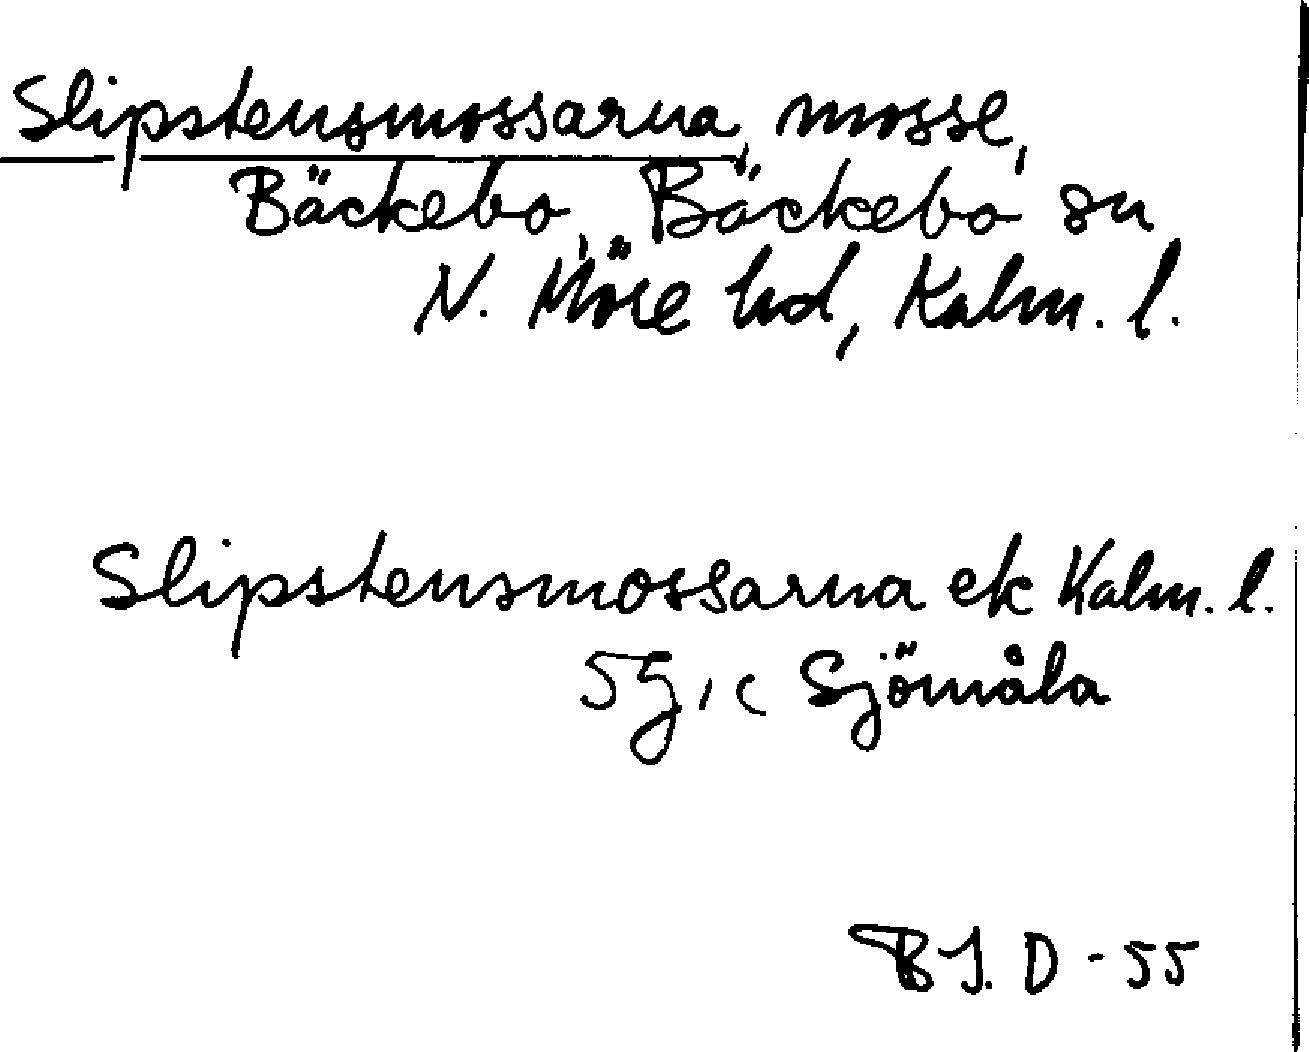 Slipstensmossarna, mosse,
Bäckebo, Bäckebo sn
N. Möre hd, Kalm. l.
Slipstensmossarna ek Kalm. l.
5g, c Sjömåla
BJ. D - 55